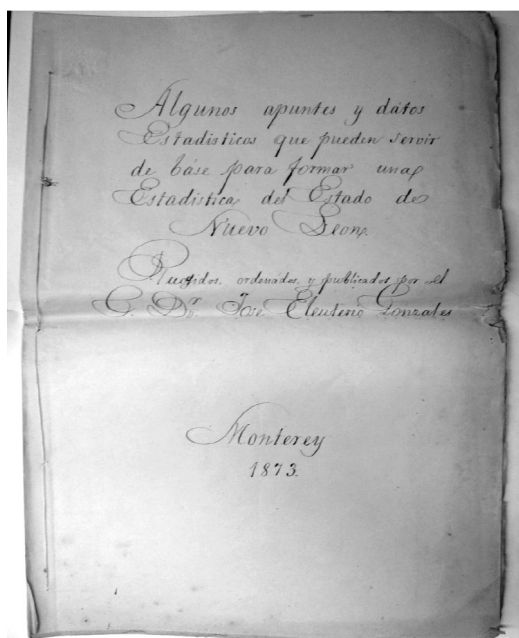 Algunos apuntes y datos
Estadisticos que pueden servir
de báse para formar una
Estadistica del Estado de
Nuevo Leon.
ordenados, y publicados por el
C. Dr. José Eleuterio Gonzales
Monterey
1873.